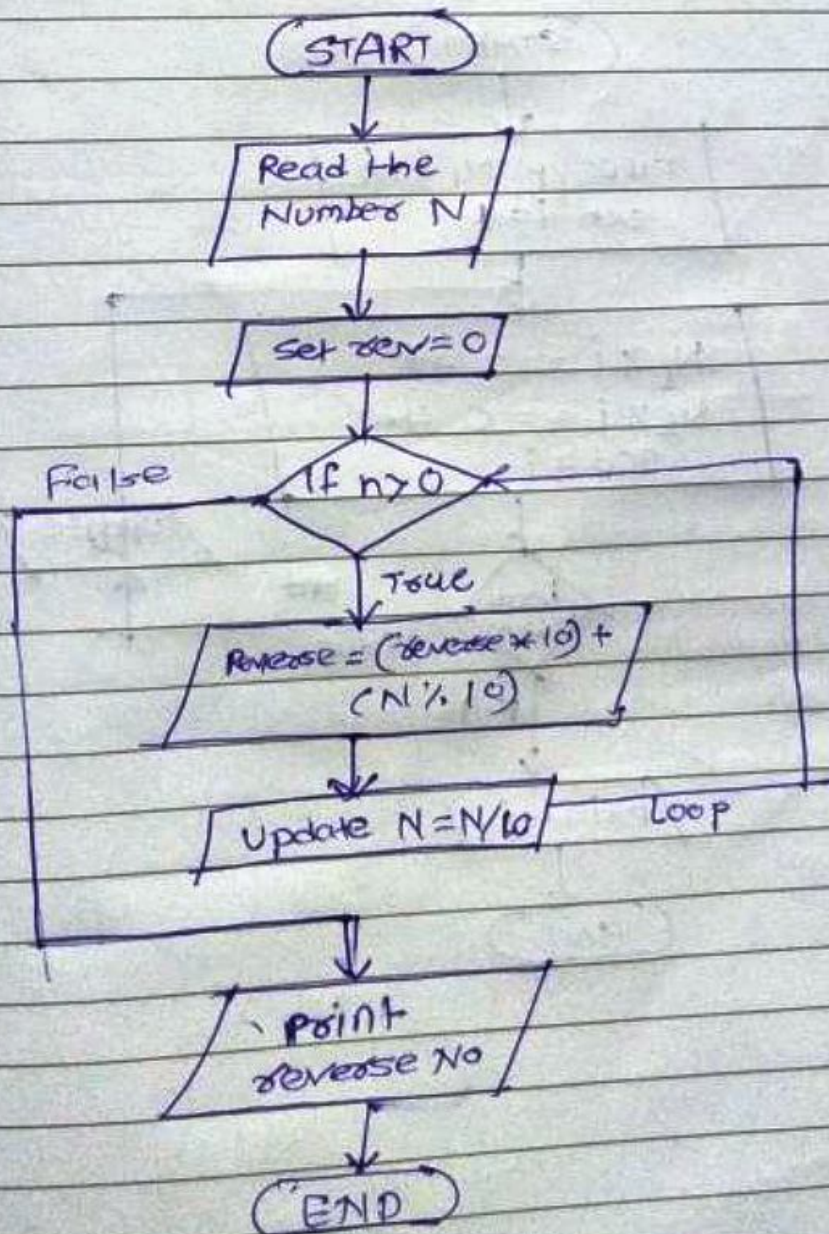 START
Read the
Number N
Set rev=0
If n>0
False
True
Reverse = (reverse * 10) +
(N % 10)
Update N=N/10
Loop
Print
reverse No
END